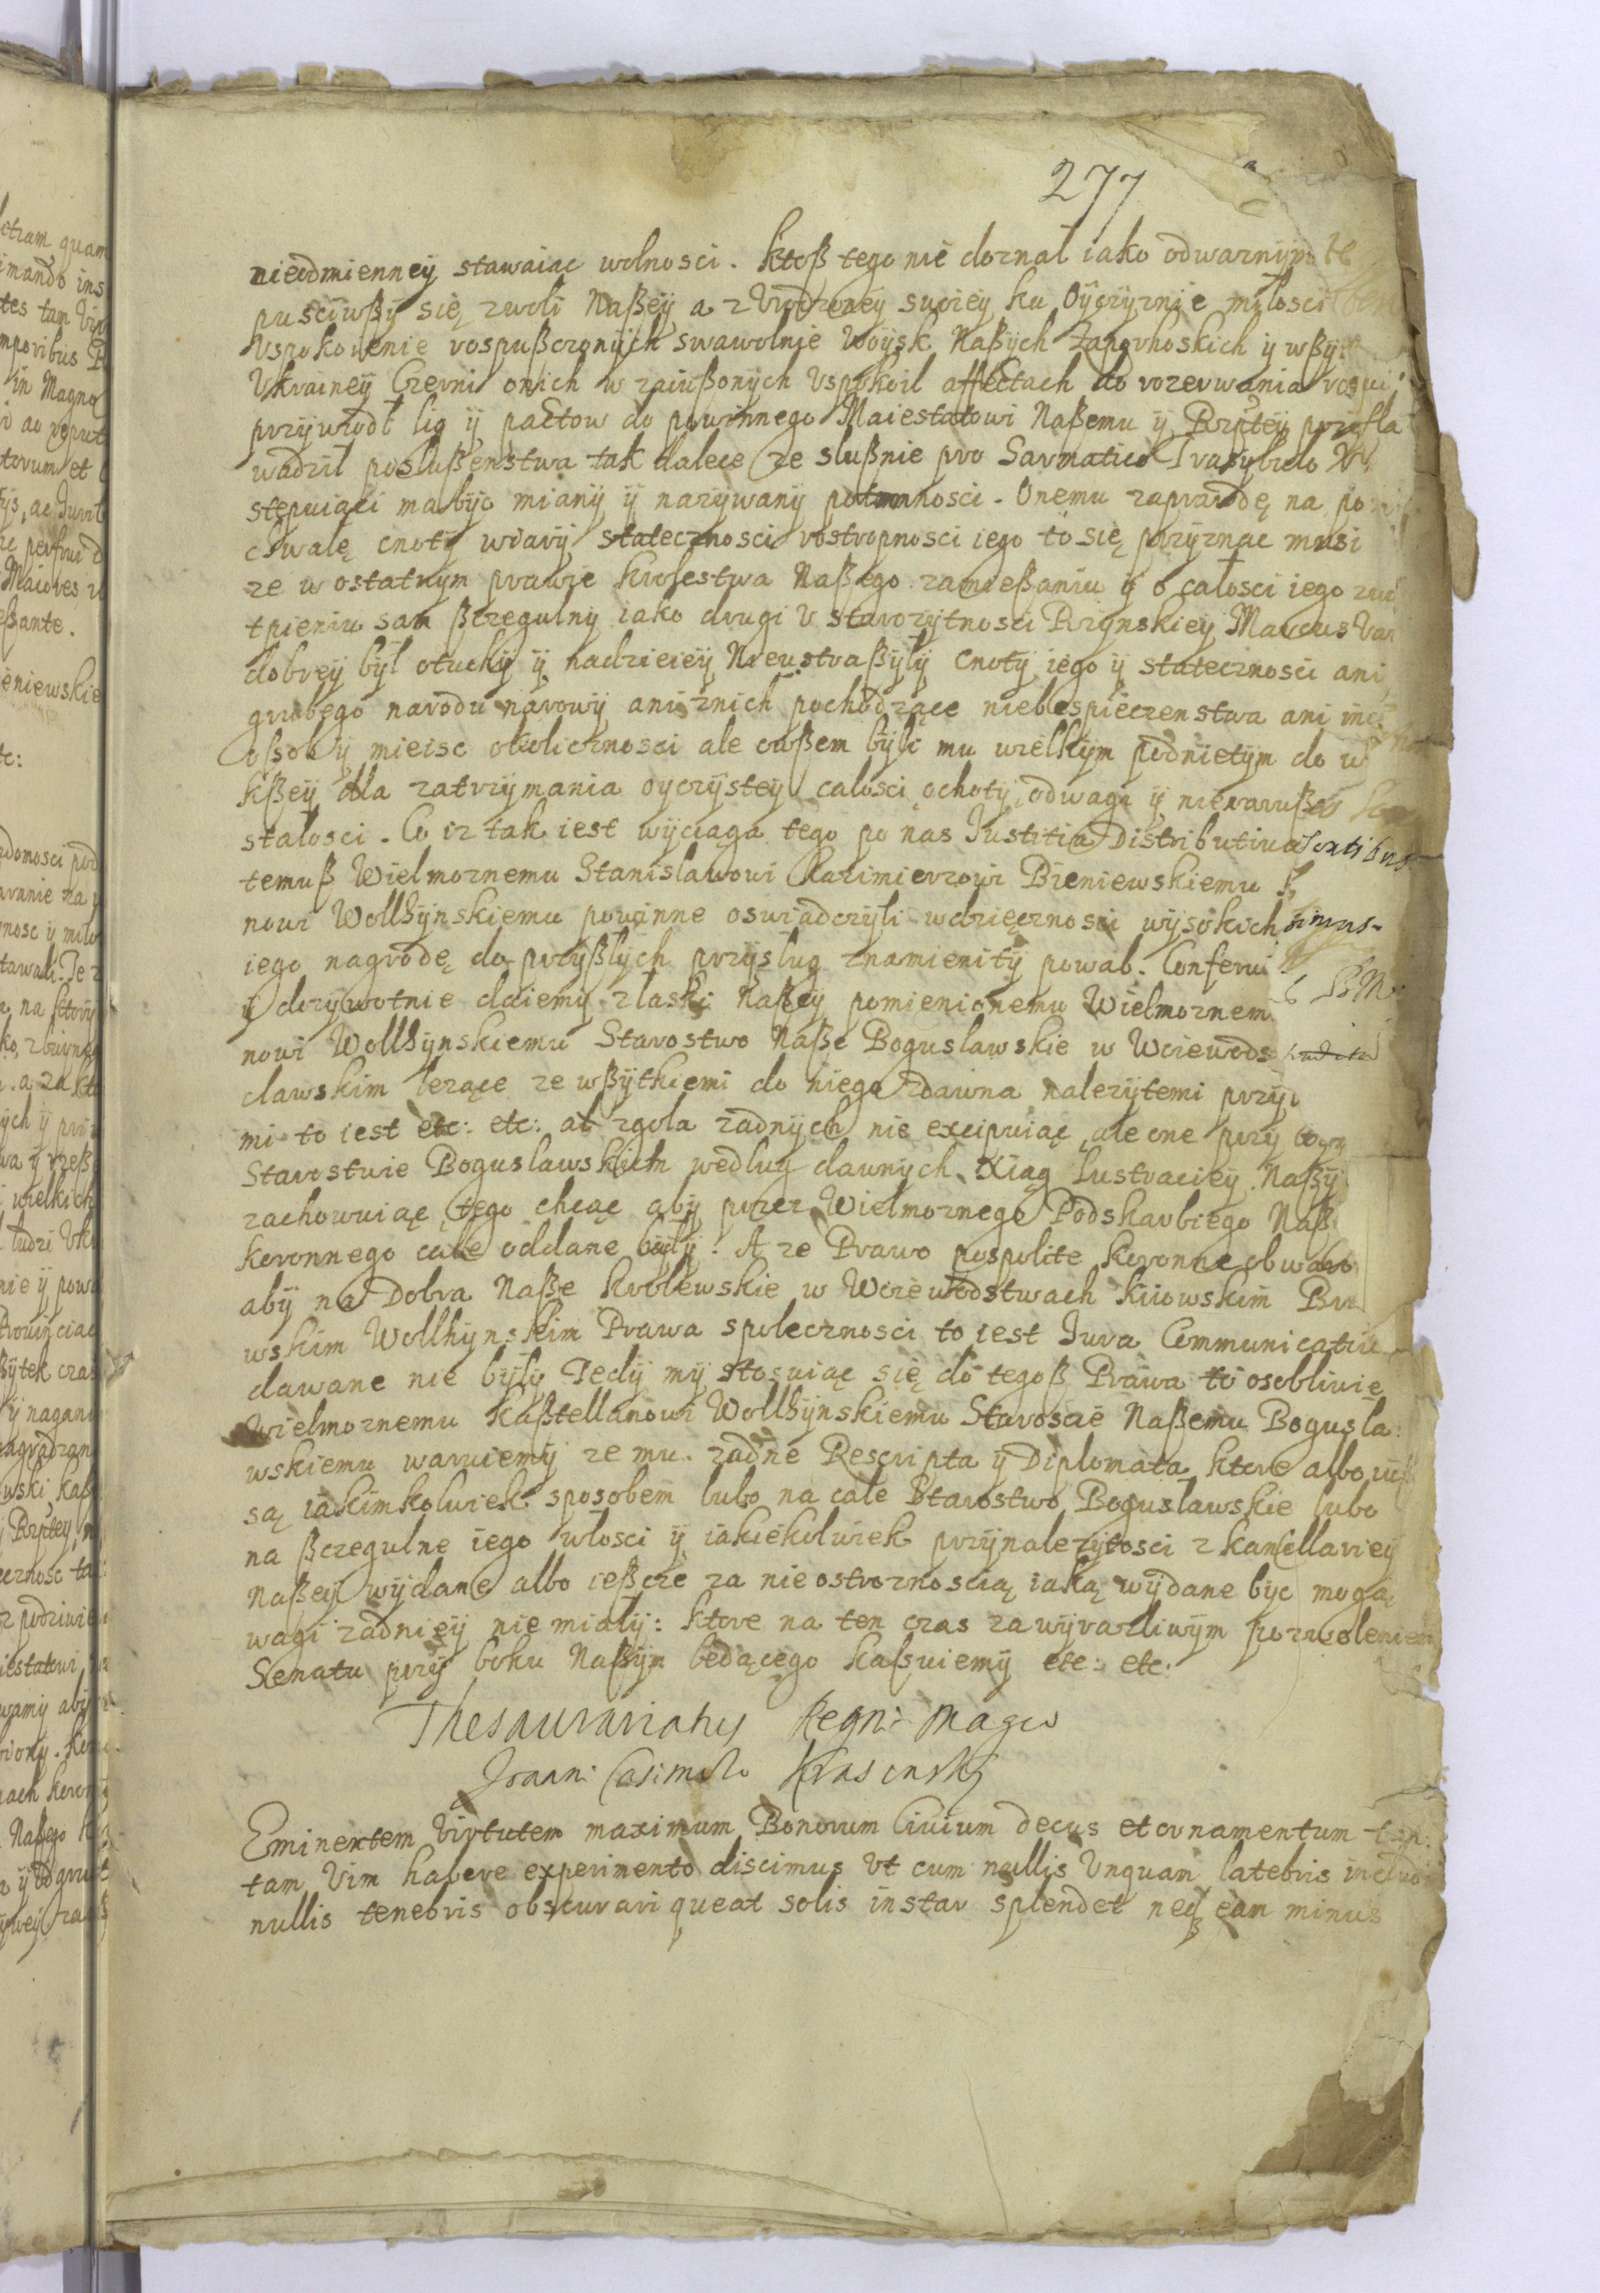 277
nieodmienneÿ stawaiąc wolnosci. Ktoß tego nie doznał iako odwaznÿm
pusciwßÿ się zwoli Naßeÿ a z Vrodzoneÿ swoieÿ ku Oÿczÿznie miłosci
Vspokoienie rospußczonÿch swawolnie Woÿsk Naßÿch Zaporhoskich ÿ wßÿt
Vkraineÿ Czerni onich w zaiußonÿch Vspokoil affectach do rozerwania
przÿwiodł lig ÿ pactow do powinnego Maiestatowi Naßemu ÿ Rzpteÿ
wadził poslußenstwa tak dalece ze slußnie pro Sarmatico Trasybulo
stępuiąci ma bÿc mianÿ ÿ nazÿwanÿ potomnosci. Onemu zaprawdę na
chwałę cnotÿ wiarÿ statecznosci rostropnosci iego to się przÿznac musi
ze w ostatnÿm prawie krolestwa Naßego zamießaniu ÿ o całosci iego
tpieniu sam ßczegulnÿ iako drugi v starozÿtnosci Rzÿmskieÿ Marcus
dobreÿ bÿł otuchÿ ÿ nadzieieÿ Nieustraßÿłÿ cnotÿ iego ÿ statecznosci ani
grubego narodu narowÿ ani znich pochodzące niebespieczenstwa ani
osobÿ mieisc okolicznosci ale owßem bÿli mu wielkÿm podnietÿm do
kßeÿ dla zatrzÿmania oÿczÿsteÿ całosci ochotÿ, odwagi ÿ
stałosci. Co iz tak iest wÿciąga tego po nas Iustitia Distributiva
temuß Wielmoznemu Stanisławowi Kazimierzowi Bieniewskiemu
nowi Wollhÿnskiemu powinne oswiadczÿli wdzięcznosci wÿsokich
iego nagrodę do przÿßłÿch przÿsług znamienitÿ powab. Conferui
ÿ dozÿwotnie daiemÿ z łaski Naßeÿ pomienionemu Wielmoznem
nowi Wollhÿnskiemu Starostwo Naße Bogusławskie w Woiewods
cławskim lezące ze wßÿtkiemi do niego zdawna nalezÿtemi
mi to iest etc: etc: at zgoła zadnÿch nie excipuiąc ale one przÿ
Starostwie Bogusławskim według dawnÿch Xiąg lustracieÿ Naßÿ
zachowuiąc tego chcąc abÿ przez Wielmoznego Podskarbiego Naß
koronnego całe oddane bÿłÿ. A ze Prawo pospolite koronne
abÿ na Dobra Naße krolewskie w Woiewodstwach kiiowskim
wskim Wollhÿnskim Prawa społecznosci to iest Iura Communicativa
dawane nie bÿłÿ Tedÿ mÿ stosuiąc się do tegoß Prawa to osobliwie
Wielmoznemu Kaßtellanowi Wollhÿnskiemu Staroscie Naßemu Bogusła:
wskiemu waruiemÿ ze mu zadne Rescripta ÿ Diplomata ktore albo
są iakimkolwiek sposobem lubo na całe Starostwo Bogusławskie lubo
na ßczegulne iego włosci ÿ iakiekolwiek przÿnalezÿtosci z kancellarieÿ
Naßeÿ wÿdane albo ießcze za nieostroznoscią iaką wÿdane bÿc mogą
wagi zadnieÿ nie miałÿ: ktore na ten czas za wÿrazliwÿm pozwoleniem
Senatu przÿ boku Naßÿm będącego kassuiemÿ etc: etc:
Thesaurariatus Regni Magni
Joanni Casimiro Krasinski
Eminentem Virtutem maximum Bonorum Civium decus et ornamentum
tam Vim habere experimento discimus Vt cum nullis Vnquam latebris includi
nullis tenebris obscurari queat solis instar splendet neq eam minus